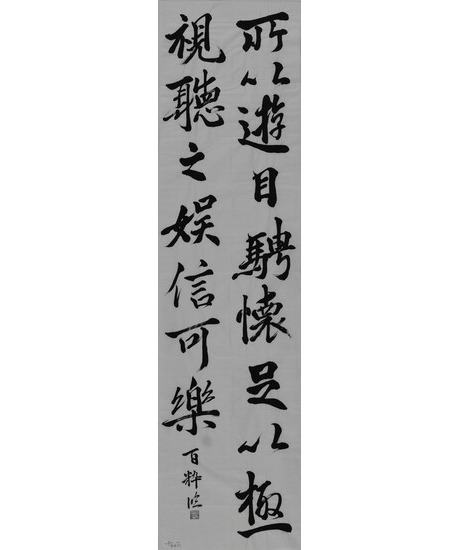 所以遊目騁懷足以極
視聽之娛信可樂
百粹臨